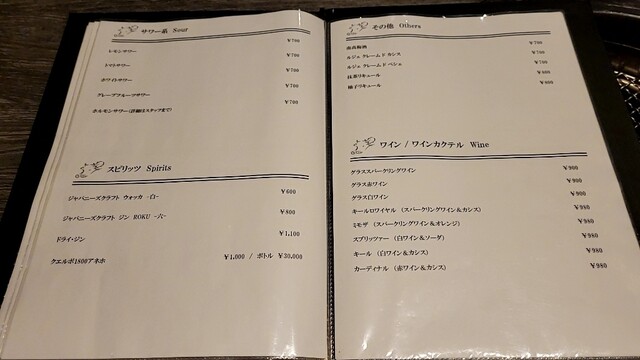 サワー系 Sour
¥700
レモンサワー
¥700
トマトサワー
¥700
ホワイトサワー
¥700
グレープフルーツサワー
¥700
ホルモンサワー(詳細はスタッフまで)
スピリッツ Spirits
ジャパニーズクラフト ウォッカ -白- ¥600
ジャパニーズクラフト ジン ROKU -六- ¥800
ドライ・ジン ¥1,100
クエルボ1800アネホ ¥1,000 / ボトル ¥30,000
その他 Others
南高梅酒 ¥700
ルジェ クレーム ド カシス ¥700
ルジェ クレーム ド ペシェ ¥700
抹茶リキュール ¥800
柚子リキュール ¥800
ワイン / ワインカクテル Wine
グラススパークリングワイン ¥900
グラス赤ワイン ¥900
グラス白ワイン ¥900
キールロワイヤル (スパークリングワイン&カシス) ¥980
ミモザ (スパークリングワイン&オレンジ) ¥980
スプリッツァー (白ワイン&ソーダ) ¥980
キール (白ワイン&カシス) ¥980
カーディナル (赤ワイン&カシス) ¥980